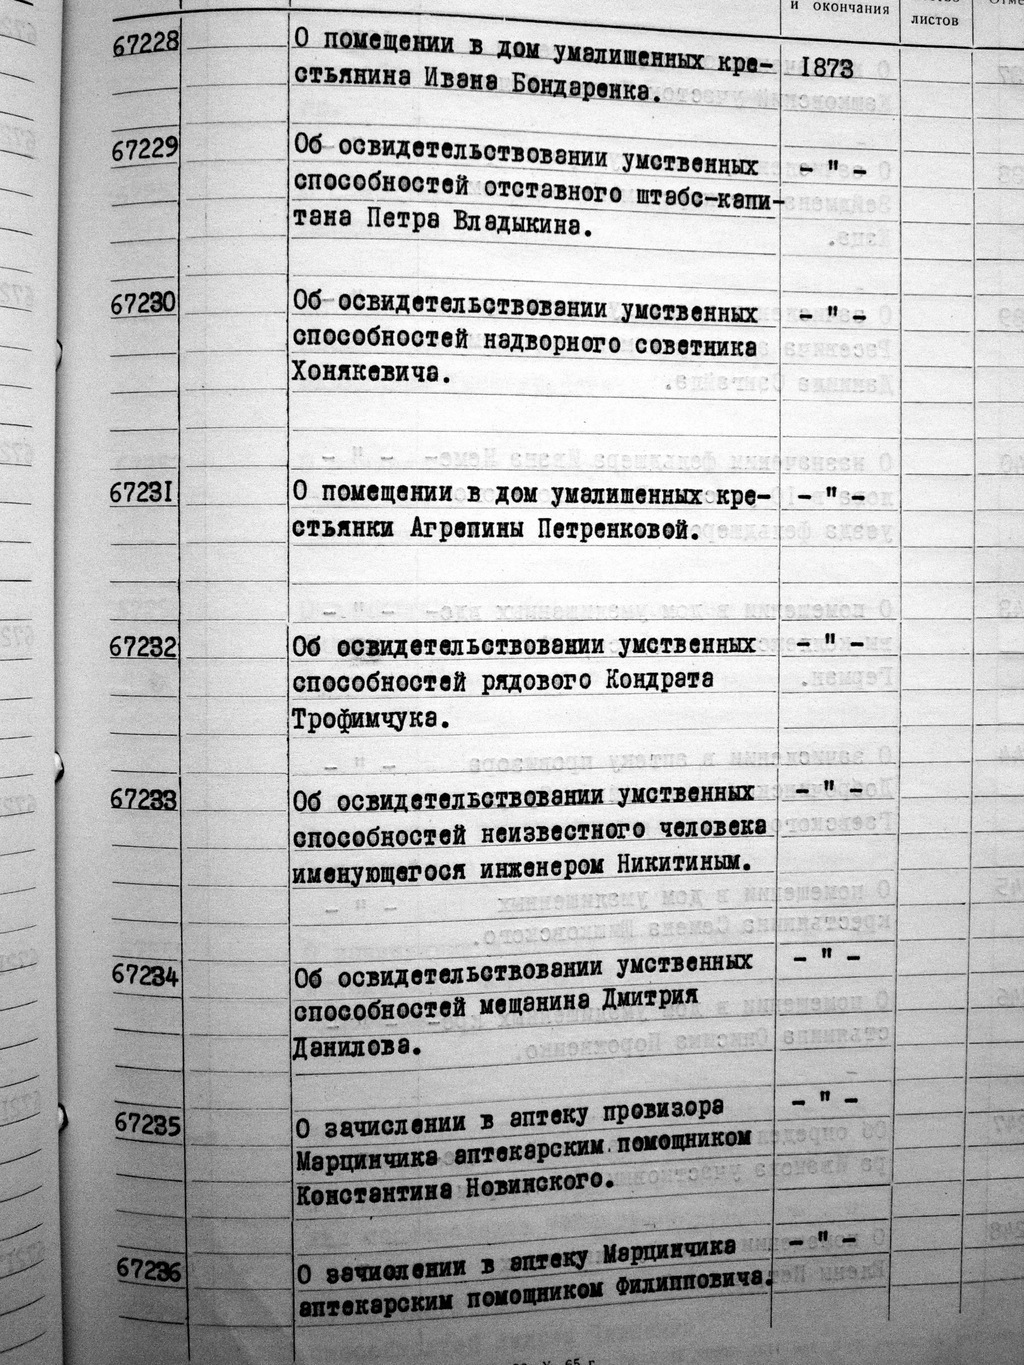 и окончания
листов
67228 О помещении в дом умалишенных кре- 1873
стьянина Ивана Бондаренка.
67229 Об освидетельствовании умственных - " -
способностей отставного штабс-капи-
тана Петра Владыкина.
67230 Об освидетельствовании умственных - " -
способностей надворного советника
Хонякевича.
67231 О помещении в дом умалишенных кре- - " -
стьянки Агрепины Петренковой.
67232 Об освидетельствовании умственных - " -
способностей рядового Кондрата
Трофимчука.
67233 Об освидетельствовании умственных - " -
способностей неизвестного человека
именующегося инженером Никитиным.
67234 Об освидетельствовании умственных - " -
способностей мещанина Дмитрия
Данилова.
67235 О зачислении в аптеку провизора - " -
Марцинчика аптекарским помощником
Константина Новинского.
67236 О зачислении в аптеку Марцинчика - " -
аптекарским помощником Филипповича.